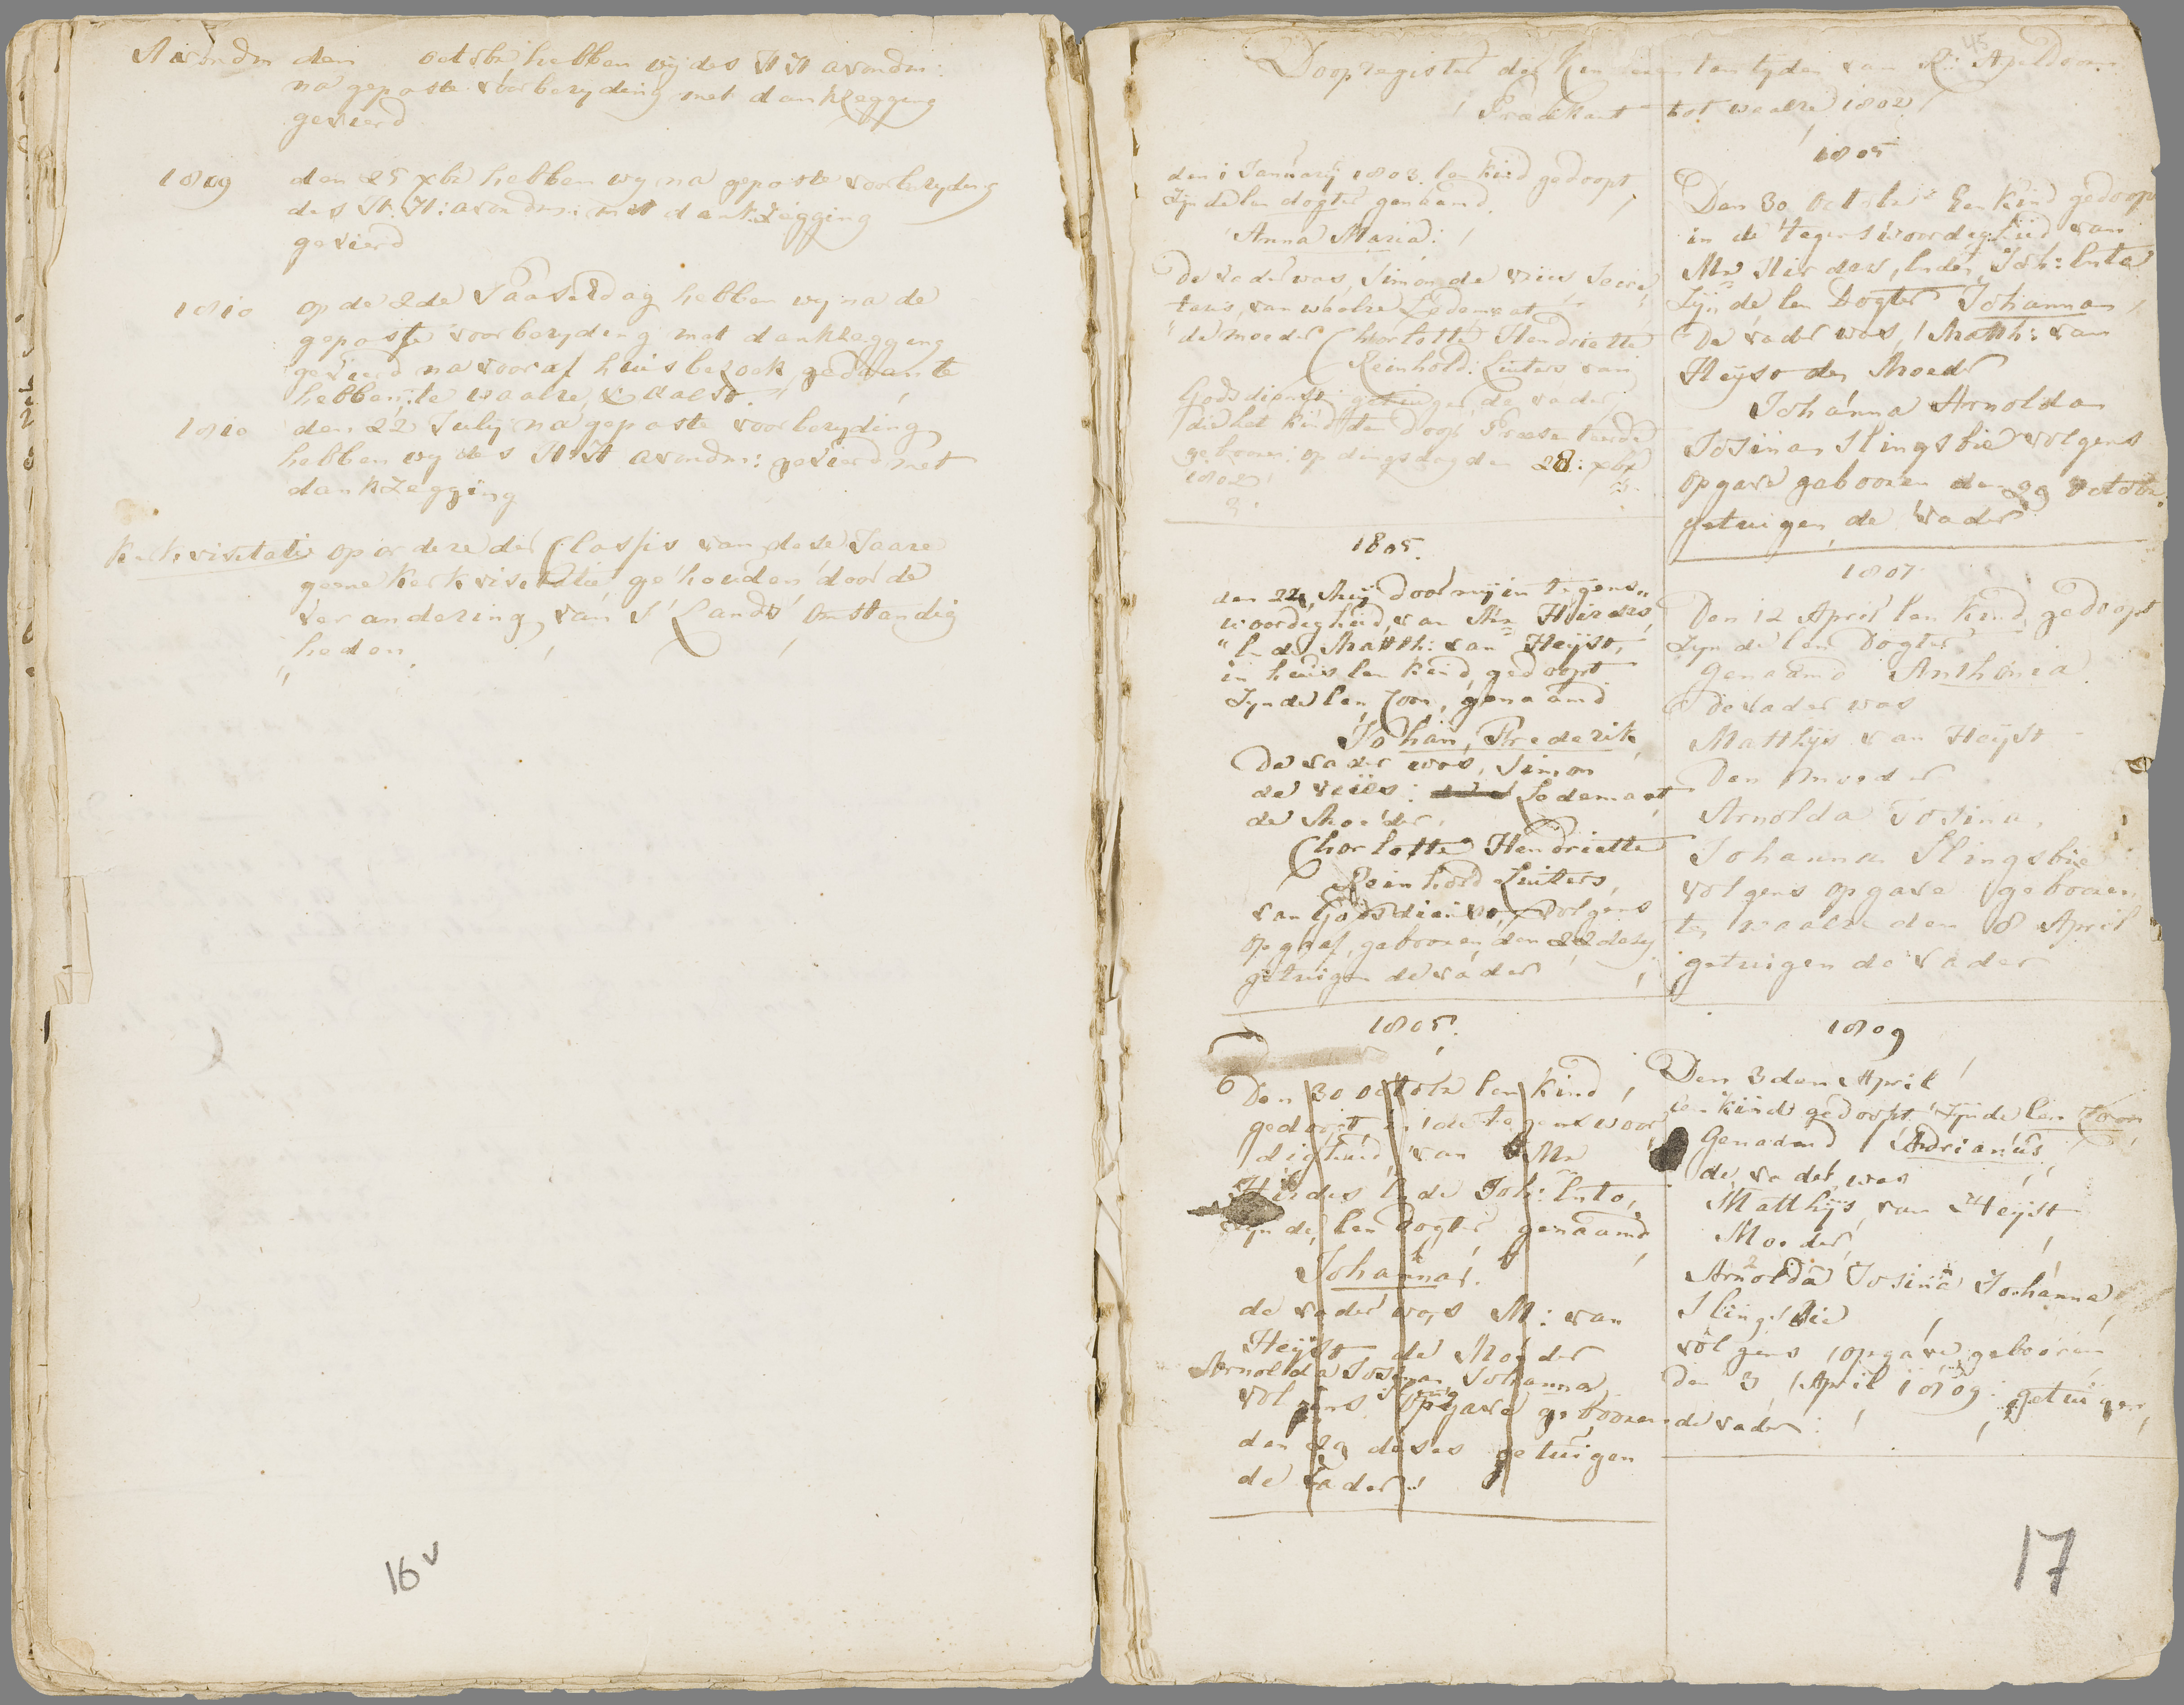 Avondm den octobr hebben wij des H H avondm:
na gepaste voorberyding met dankzegging
gevierd
1809 den 25 xbr hebben wy na gepaste voorberyding
des H. H: avondm: met dankzegging
gevierd
1810 op de 2de Paaschdag hebben wy na de
gepaste voorberyding met dankzegging
gevierd na vooraf huisbezoek gedaan te
hebben, te waalre, & aalst.
1810 den 22 July na gepaste voorberyding
hebben wy des H H avondm: gevierd met
dankzegging
Kerkvisitatie op ordere der Classis van dese Jaare
geene Kerkvisitatie gehouden door de
verandering van S Lands omstandig
"heden
16v
45
Doopregister der Kinderen ten tyden van R: Apeldoorn
Predikant tot waalre 1802
den 1 January 1803 een kind gedoopt
Zynde een dogter genaamd
Anna Maria:
De vader was, Simon de vries Secre
taris, van waalre Ledemaat
de moeder Charlotte Hendriette
Reinhold: Luters van
Godsdienst: getuigen de vader,
die het kind ten doop Presenteerde
gebooren: op dingsdag den 28: xbr
1802
1805.
den 22, Meij door mij in tegens„
woordigheid, van Mr Hirdes,
"en de Matth: van Heijst,
in huis een kind, gedoopt
Zynde een Zoon, genaamd
Johan, Frederik
De vader was, Simon
de vries: Ledemaat
de Moeder
Charlotte Hendriette
Reinhold Luiters,
van Godsdienst, volgens
opgaaf, gebooren, den 22 dezer
getuigen de vader
1805.
Den 30 octobr een kind,
gedoopt in de tegenswoor
digheid van Mr
Hirdes en de Joh: Ento,
Zynde, een dogter genaamd
Johanna.
de vader was M: van
Heijst de Moeder
Arnolda Josina Johanna
Sling
volgens opgave gebooren
den 29 deses getuigen
de vader:
1805
Den 30 October Een kind gedoopt
in de tegenswoordigheid van
Mr Hirdes, en de, Joh: Ento
Zynde een Dogter Johanna
De vader was, Matth: van
Heijst den Moeder
Johanna Arnolda
Josina Slingsbie volgens
opgave gebooren den 29 october
getuigen, de vader
1807
Den 12 April een kind, gedoopt
Zynde een Dogter
genaamd Anthonia.
de vader was
Matthijs van Heijst
Den Moeder
Arnolda Josina,
Johanna Slingsbie
volgens opgave gebooren,
te, waalre den 8 April
getuigen de vader
1809
Den 3den April
een kind gedoopt, Zynde een Zoon
Genaamd Adrianus
de, vader was
Matthijs, van Heijst
Moeder,
Arnolda Josina Johanna
Slingsbie
volgens, opgave, gebooren
den 3 April 1809: getuigen
de vader:
17